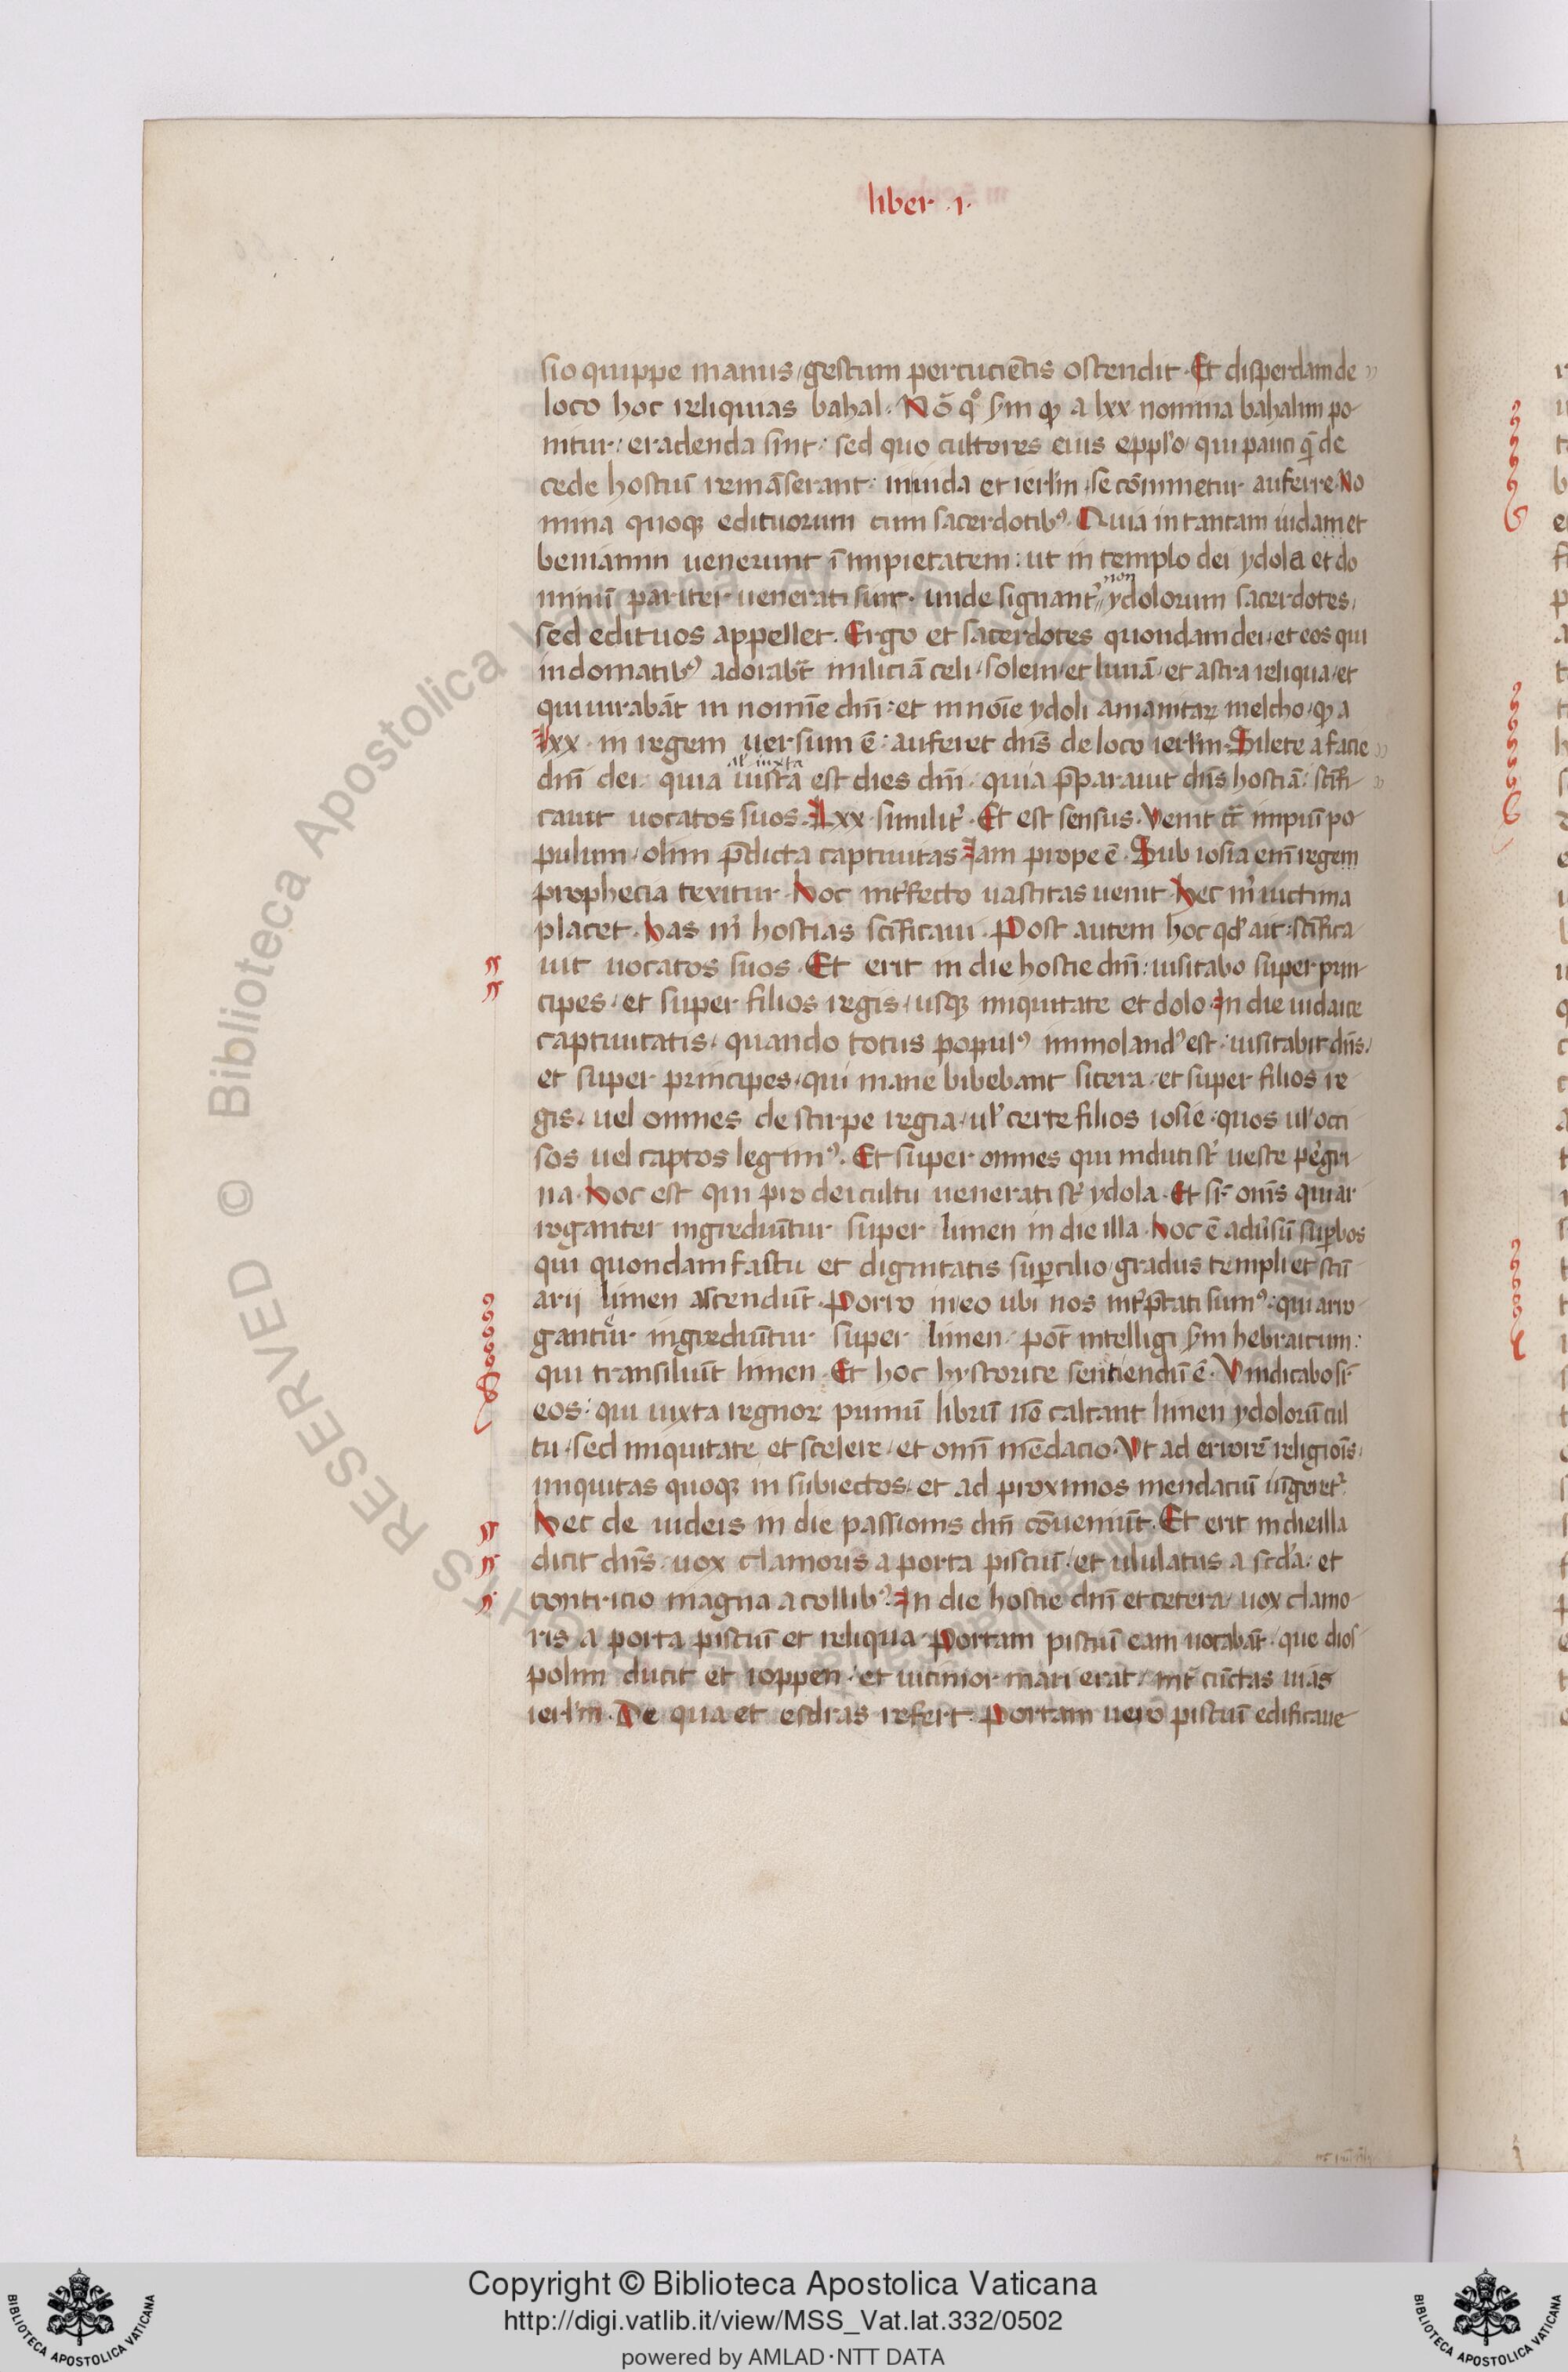 liber .i.
sio quippe manus/gestum percuciẽtis ostendit. Et disperdam de
loco hoc reliquias bahal. Nõ qͦ sꝫm ꝙ a lxx nomina bahalim po-
nitur/ eradenda sint: sed quo cultores eius epplo/ qui pauci q̃ de
cede hostiũ remãserant. iniuda et ierl'm se cõmmetur auferre. No
mina quoqꝫ edituorum cum sacerdotibꝰ. Quia in tantam iudam et
beniamin uenerunt ĩ impietatem: ut in templo dei ydola et do
non
minũ pariter uenerati sunt. unde signant᷑ // ydolorum sacerdotes,
sed edituos appellet. Ergo et sacerdotes quondam dei/ et eos qui
in domatibꝰ adorabãt miliciã celi/ solem/ et lunã/ et astra reliqua/ et
qui iurabãt in nomĩe dñi: et in noĩe ydoli amanitaꝝ melcho/ ꝙ a
lxx. in regem uersum ẽ: auferet dñs de loco ierl'm. Silete a facie
al' iuxta
dñi dei. quia iusta est dies dñi. quia p̃parauit dñs hostiã: sc̃ifi-
cauit uocatos suos. Lxx. similit᷑. Et est sensus. Venit ct̃ impiũ po-
pulum/ olim p̃dicta captiuitas. Iam prope ẽ. Sub iosia em̃ regem
prophecia texitur. Hoc int᷑fecto uastitas uenit. Hec m̃ uictima
placet. Has m̃ hostias sc̃ificaui. Post autem hoc qd' ait: sc̃ifica-
uit uocatos suos. Et erit in die hostie dñi: uisitabo super prin-
cipes/ et super filios regis/ usqꝫ iniquitate et dolo. In die iudaice
captiuitatis/ quando totus populꝰ immolandꝰ est: uisitabit dñs/
et super principes/ qui mane bibebant sicera/ et super filios re
gis/ uel omnes de stirpe regia/ ul' certe filios iosie. quos ul' occi
sos uel captos legimꝰ. Et super omnes qui induti st᷑ ueste pegri-
na. Hoc est qui pro dei cultu uenerati st᷑ ydola. Et sr̃ om̃s qui ar
roganter ingrediũtur super limen in die illa. Hoc ẽ adũsũ suꝑbos
qui quondam fastu et dignitatis suꝑcilio/ gradus templi et sc̃u
arii limen ascendũt. Porro in eo ubi nos int᷑p̃tati sumꝰ: qui arro-
ganter ingrediũtur super limen/ pot̃ intelligi sꝫm hebraicum:
qui transiliũt limen. Et hoc hystorice sentiendũ ẽ. Vindicabo sr̃
eos: qui iuxta regnoꝝ primũ librũ nõ calcant limen ydolorũ cul
tu/ sed iniquitate et scelere/ et omni mẽdacio. Vt ad errorẽ religiõis/
iniquitas quoqꝫ in subiectos/ et ad proximos mendaciũ iũgeret᷑.
Hec de iudeis in die passionis dñi cõueniũt. Et erit in die illa
dicit dñs. uox clamoris a porta pisciũ/ et ululatus a sc̃da. et
contricio magna a collibꝰ. In die hostie dñi et cetera/ uox clamo-
ris a porta pisciũ et reliqua. Portam pisciũ eam uocabãt/ que dios-
polim ducit et ioppen/ et uicinior mari erat/ int᷑ cũctas uias
ierl'm. De qua et esdras refert. Portam uero pisciũ edificaue-
© Biblioteca Apostolica Vaticana
RESERVED
Copyright © Biblioteca Apostolica Vaticana
http://digi.vatlib.it/view/MSS_Vat.lat.332/0502
powered by AMLAD·NTT DATA
BIBLIOTECA APOSTOLICA VATICANA
BIBLIOTECA APOSTOLICA VATICANA